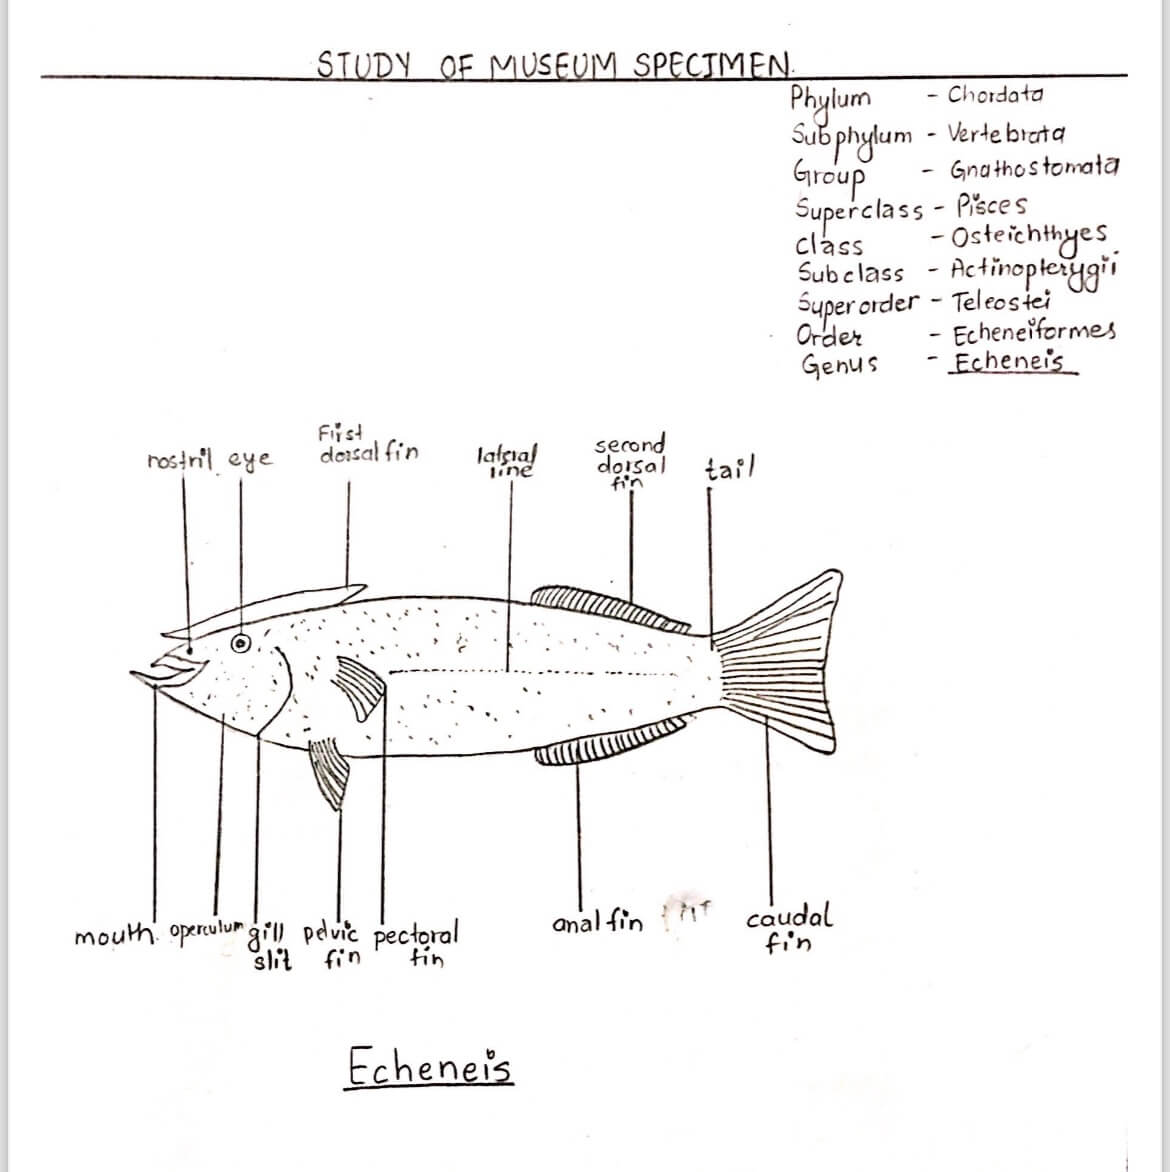 STUDY OF MUSEUM SPECIMEN.
Phylum - Chordata
Subphylum - Vertebrata
Group - Gnathostomata
Superclass - Pisces
class - Osteichthyes
Subclass - Actinopterygii
Superorder - Teleostei
Order - Echeneiformes
Genus - Echeneis
nostril eye
First
dorsal fin
lateral
line
second
dorsal
fin
tail
mouth.
operculum
gill
slit
pelvic
fin
pectoral
fin
anal fin
caudal
fin
Echeneis